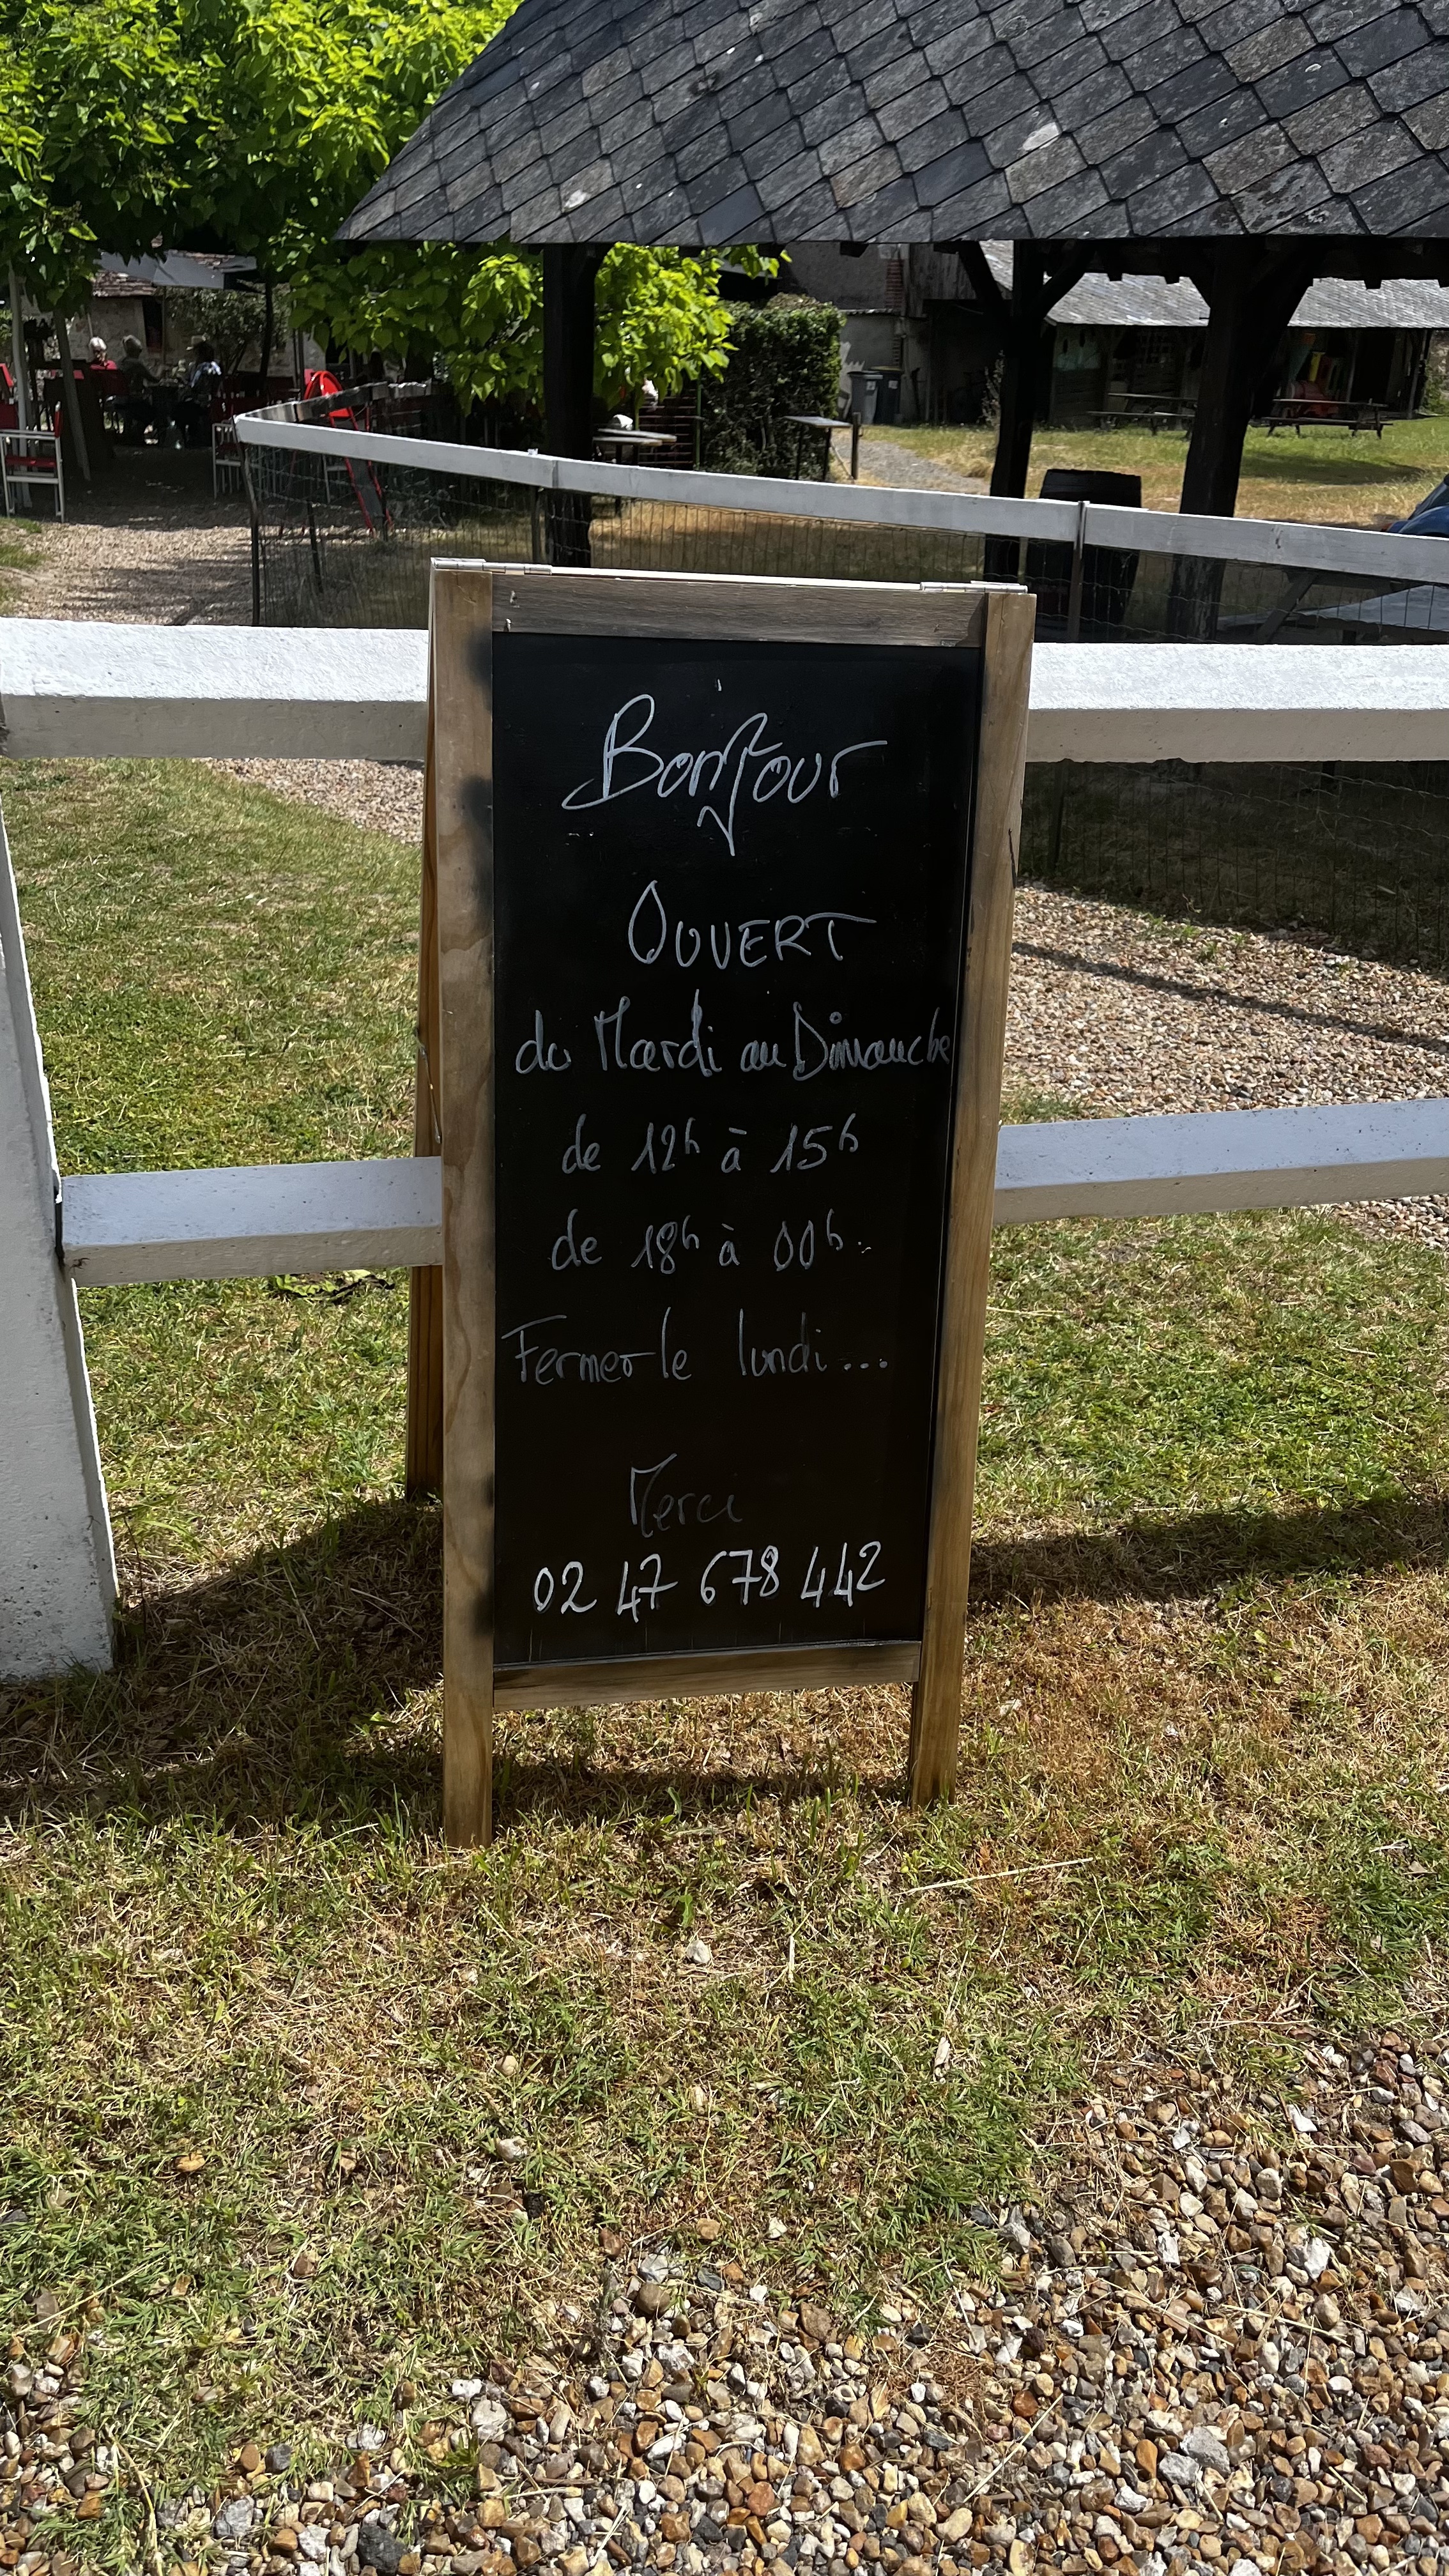 Bonjour
OUVERT
du Mardi au Dimanche
de 12h à 15h
de 18h à 00h.
Fermer le lundi...
Merci
02 47 678 442